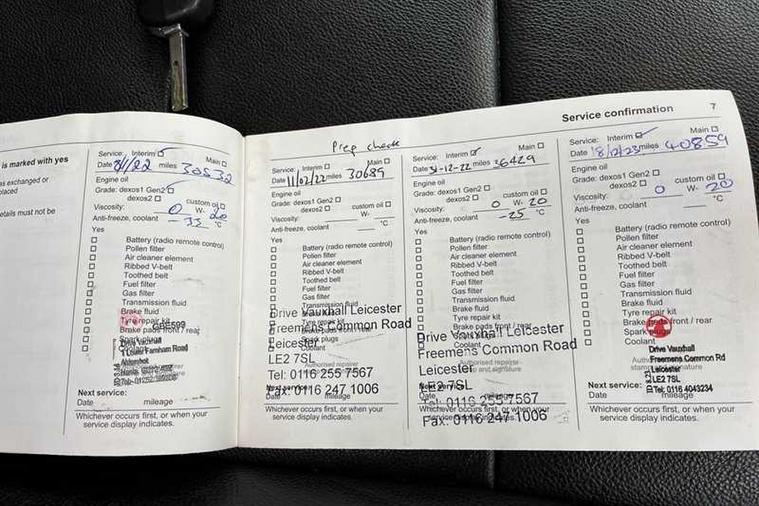 is marked with yes
as exchanged or
placed
etails must not be
Service: Interim Main
Date miles 30532
Engine oil
Grade: dexos1 Gen2
dexos2 custom oil
Viscosity: 0 W- 20
Anti-freeze, coolant -35 °C
Yes
Battery (radio remote control)
Pollen filter
Air cleaner element
Ribbed V-belt
Toothed belt
Fuel filter
Gas filter
Transmission fluid
Brake fluid
Tyre repair kit
Brake pads front / rear
GBE599
Drive Vauxhall
1 Lower Farnham Road
Aldershot
Next service:
Date mileage
Whichever occurs first, or when your
service display indicates.
Prep check
Service: Interim Main
Date 11/02/22 miles 30689
Engine oil
Grade: dexos1 Gen2
dexos2 custom oil
Viscosity: W-
Anti-freeze, coolant °C
Yes
Battery (radio remote control)
Pollen filter
Air cleaner element
Ribbed V-belt
Toothed belt
Fuel filter
Gas filter
Transmission fluid
Drive Vauxhall Leicester
Freemens Common Road
Leicester
LE2 7SL
Tel: 0116 255 7567
Fax: 0116 247 1006
Next service:
mileage
Whichever occurs first, or when your
service display indicates.
Service confirmation 7
Service: Interim Main
Date 31-12-22 miles 36429
Engine oil
Grade: dexos1 Gen2
dexos2 custom oil
Viscosity: 0 W- 20
Anti-freeze, coolant -25 °C
Yes
Battery (radio remote control)
Pollen filter
Air cleaner element
Ribbed V-belt
Toothed belt
Fuel filter
Gas filter
Transmission fluid
Brake fluid
Tyre repair kit
Brake pads front / rear
Drive Vauxhall Leicester
Freemens Common Road
Coolant
Leicester
LE2 7SL
Tel: 0116 255 7567
Fax: 0116 247 1006
Whichever occurs first, or when your
service display indicates.
Service: Interim Main
Date 18/12/23 miles 40859
Engine oil
Grade: dexos1 Gen2
dexos2 custom oil
Viscosity: 0 W- 20
Anti-freeze, coolant °C
Yes
Battery (radio remote control)
Pollen filter
Air cleaner element
Ribbed V-belt
Toothed belt
Fuel filter
Gas filter
Transmission fluid
Brake fluid
Tyre repair kit
Brake pads front / rear
Spark plugs
Coolant
Drive Vauxhall
Freemens Common Rd
Leicester
LE2 7SL
Tel: 0116 4043234
Next service:
Date mileage
Whichever occurs first, or when your
service display indicates.